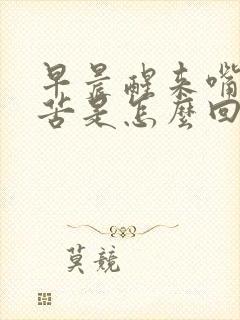 早晨醒来嘴
苦是怎麽回
莫競